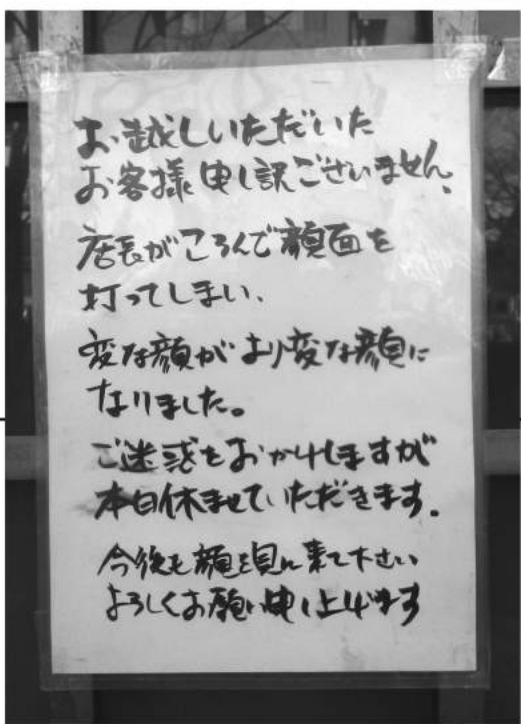 お越しいただいた
お客様申し訳ございません。
店長がころんで顔面を
打ってしまい、
変な顔がより変な顔に
なりました。
ご迷惑をおかけしますが
本日休ませていただきます。
今後も顔を見に来て下さい
よろしくお願い申し上げます